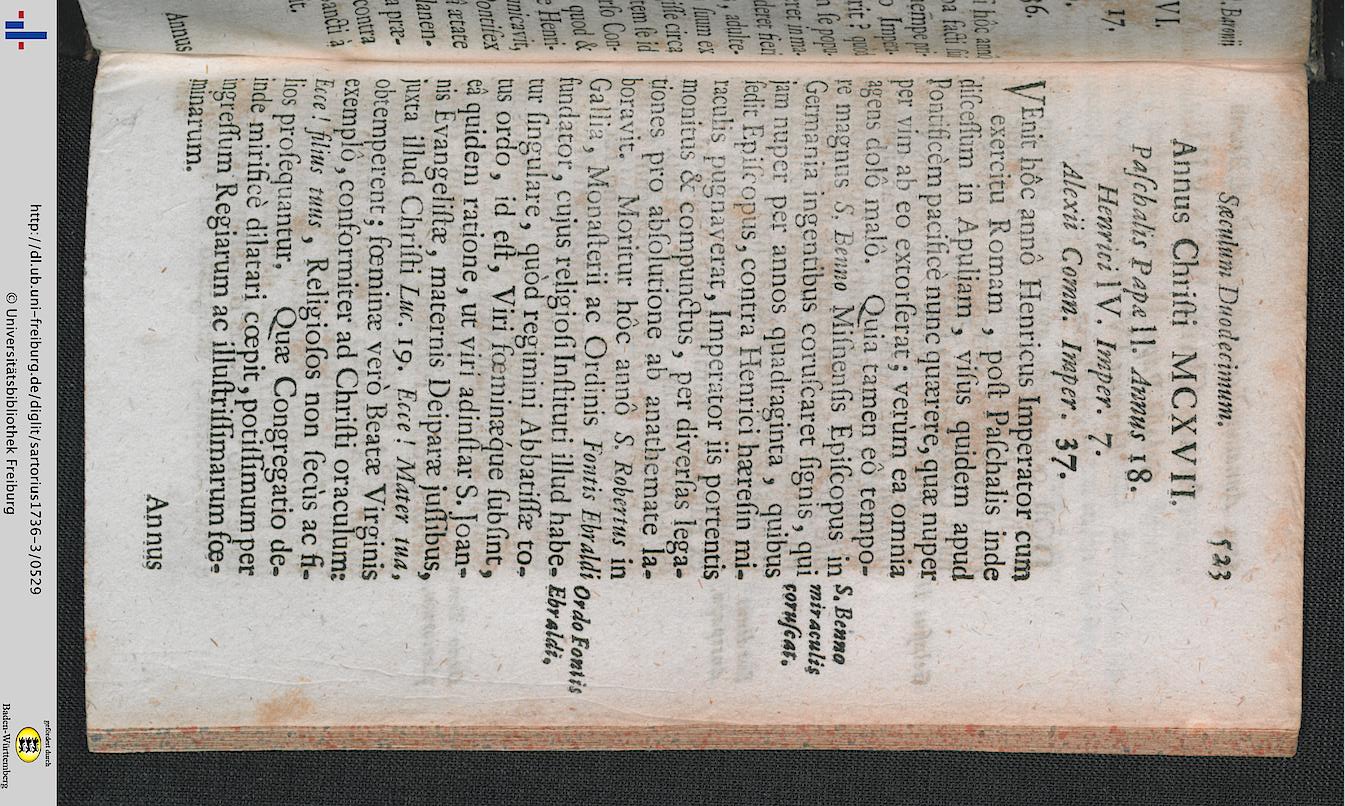 Sæculum Duodecimum. 523
Annus Chriſti MCXVII.
Paſchalis Papæ II. Annus 18.
Henrici IV. Imper. 7.
Alexii Comn. Imper. 37.
VEnit hôc annô Henricus Imperator cum
exercitu Romam, poſt Paſchalis inde
diſceſſum in Apuliam, viſus quidem apud
Pontificèm pacificè nunc quærere, quæ nuper
per vim ab eo extorſerat; verùm ea omnia
agens dolô malô. Quia tamen eô tempo-
re magnus S. Benno Miſnenſis Epiſcopus in
Germania ingentibus coruſcaret ſignis, qui
jam nuper per annos quadraginta, quibus
ſedit Epiſcopus, contra Henrici hæreſin mi-
raculis pugnaverat, Imperator iis portentis
monitus & compunctus, per diverſas lega-
tiones pro abſolutione ab anathemate la-
boravit. Moritur hôc annô S. Robertus in
Gallia, Monaſterii ac Ordinis Fontis Ebraldi
fundator, cujus religioſi Inſtituti illud habe-
tur ſingulare, quòd regimini Abbatiſſæ to-
tus ordo, id eſt, Viri fœminæq́ue ſubſint,
eâ quidem ratione, ut viri adinſtar S. Joan-
nis Evangeliſtæ, maternis Deiparæ juſſibus,
juxta illud Chriſti Luc. 19. Ecce! Mater tua,
obtemperent; fœminæ verò Beatæ Virginis
exemplô, conformiter ad Chriſti oraculum:
Ecce! filius tuus, Religioſos non ſecùs ac fi-
lios proſequantur. Quæ Congregatio de-
inde mirificè dilatari cœpit, potiſſimum per
ingreſſum Regiarum ac illuſtriſſimarum fœ-
minarum.
Annus
S. Benno
miraculis
coruſcat.
Ordo Fontis
Ebraldi.
Annus
http://dl.ub.uni-freiburg.de/diglit/sartorius1736-3/0529
© Universitätsbibliothek Freiburg
gefördert durch
Baden-Württemberg